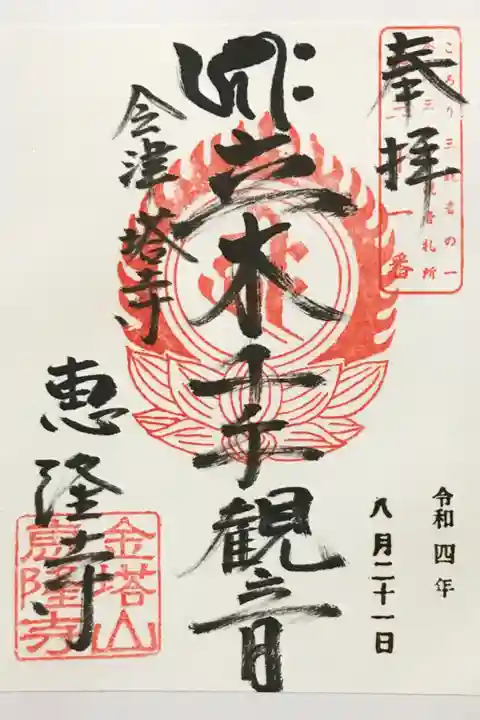 奉拝
立木千手観音
会津 塔寺
恵隆寺
令和四年
八月二十一日
ころり三観音の一
会津三十三観音札所
三十一番
金塔山
恵隆寺